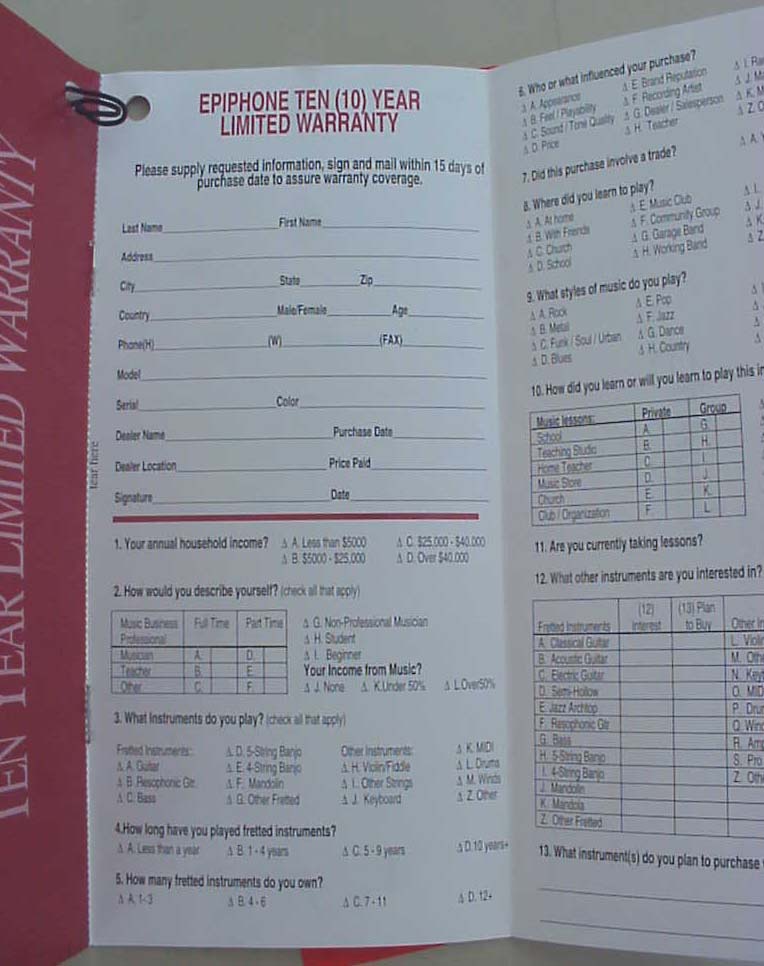 TEN YEAR LIMITED WARRANTY
tear here
tear here
EPIPHONE TEN (10) YEAR
LIMITED WARRANTY
Please supply requested information, sign and mail within 15 days of
purchase date to assure warranty coverage.
Last Name First Name
Address
City State Zip
Country Male/Female Age
Phone(H) (W) (FAX)
Model
Serial Color
Dealer Name Purchase Date
Dealer Location Price Paid
Signature Date
1. Your annual household income? Δ A. Less than $5000 Δ C. $25,000 - $40,000
Δ B. $5000 - $25,000 Δ D. Over $40,000
2. How would you describe yourself? (check all that apply)
Music Business Full Time Part Time
Professional
Musician A. D.
Teacher B. E.
Other C. F.
Δ G. Non-Professional Musician
Δ H. Student
Δ I. Beginner
Your Income from Music?
Δ J. None Δ K.Under 50% Δ L.Over50%
3. What instruments do you play? (check all that apply)
Fretted Instruments: Δ D. 5-String Banjo Other Instruments: Δ K. MIDI
Δ A. Guitar Δ E. 4-String Banjo Δ H. Violin/Fiddle Δ L. Drums
Δ B. Resophonic Gtr. Δ F. Mandolin Δ I. Other Strings Δ M. Winds
Δ C. Bass Δ G. Other Fretted Δ J. Keyboard Δ Z. Other
4.How long have you played fretted instruments?
Δ A. Less than a year Δ B. 1 - 4 years Δ C. 5 - 9 years Δ D.10 years+
5. How many fretted instruments do you own?
Δ A. 1-3 Δ B. 4 - 6 Δ C. 7 - 11 Δ D. 12+
6. Who or what influenced your purchase?
Δ A. Appearance Δ E. Brand Reputation Δ I. Ra
Δ B. Feel / Playability Δ F. Recording Artist Δ J. Ma
Δ C. Sound / Tone Quality Δ G. Dealer / Salesperson Δ K. M
Δ D. Price Δ H. Teacher Δ Z. O
7. Did this purchase involve a trade? Δ A. Y
8. Where did you learn to play?
Δ A. At home Δ E. Music Club Δ L.
Δ B. With Friends Δ F. Community Group Δ J.
Δ C. Church Δ G. Garage Band Δ K
Δ D. School Δ H. Working Band Δ Z
9. What styles of music do you play?
Δ A. Rock Δ E. Pop
Δ B. Metal Δ F. Jazz
Δ C. Funk / Soul / Urban Δ G. Dance
Δ D. Blues Δ H. Country
10. How did you learn or will you learn to play this in
Music lessons: Private Group
School A. G.
Teaching Studio B. H.
Home Teacher C. I.
Music Store D. J.
Church E. K.
Club / Organization F. L
11. Are you currently taking lessons?
12. What other instruments are you interested in?
(12) (13) Plan
Fretted Instruments Interest to Buy Other In
A. Classical Guitar L. Violin
B. Acoustic Guitar M. Othe
C. Electric Guitar N. Keyb
D. Semi-Hollow O. MIDI
E. Jazz Archtop P. Drum
F. Resophonic Gtr Q. Wind
G. Bass R. Amp
H. 5-String Banjo S. Pro
I. 4-String Banjo Z. Othe
J. Mandolin
K. Mandola
Z. Other Fretted
13. What instrument(s) do you plan to purchase